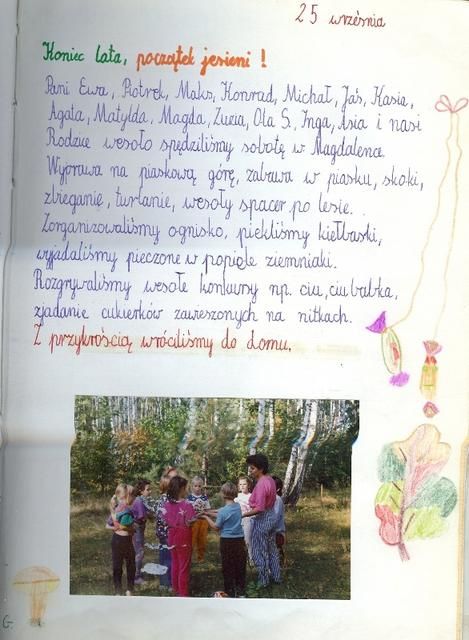 25 września
Koniec lata, początek jesieni!
Pani Ewa, Piotrek, Maks, Konrad, Michał, Jaś, Kasia,
Agata, Matylda, Magda, Zuzia, Ola S. Inga, Asia i nasi
Rodzice wesoło spędziliśmy sobotę w Magdalence.
Wyprawa na piaskową górę, zabawa w piasku, skoki,
zbieganie, turlanie, wesoły spacer po lesie.
Zorganizowaliśmy ognisko, piekliśmy kiełbaski,
wyjadaliśmy pieczone w popiele ziemniaki.
Rozgrywaliśmy wesołe konkursy np. ciu, ciu babka,
zjadanie cukierków zawieszonych na nitkach.
Z przykrością wróciliśmy do domu.
G.